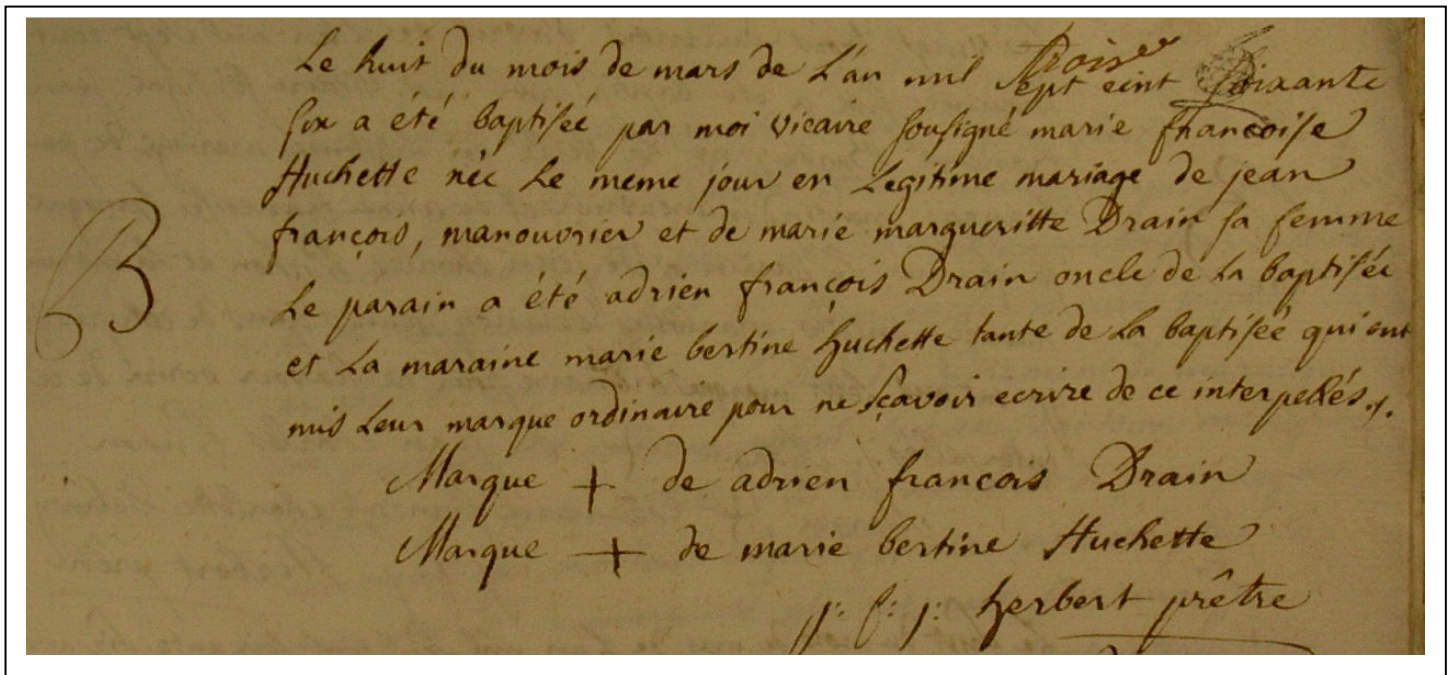 Le huit du mois de mars de L'an mil Sept cent Soixante
six a été baptisée par moi vicaire sousigné marie françoise
Huchette née Le meme jour en Legitime mariage de jean
françois, manouvrier et de marie margueritte Drain sa femme
Le parain a été adrien françois Drain oncle de La baptisée
et La maraine marie bertine huchette tante de La baptisée qui ont
mis Leur marque ordinaire pour ne sçavoir ecrire de ce interpellés ./.
B
Marque + de adrien francois Drain
Marque + de marie bertine Huchette
j: f: j: herbert prêtre